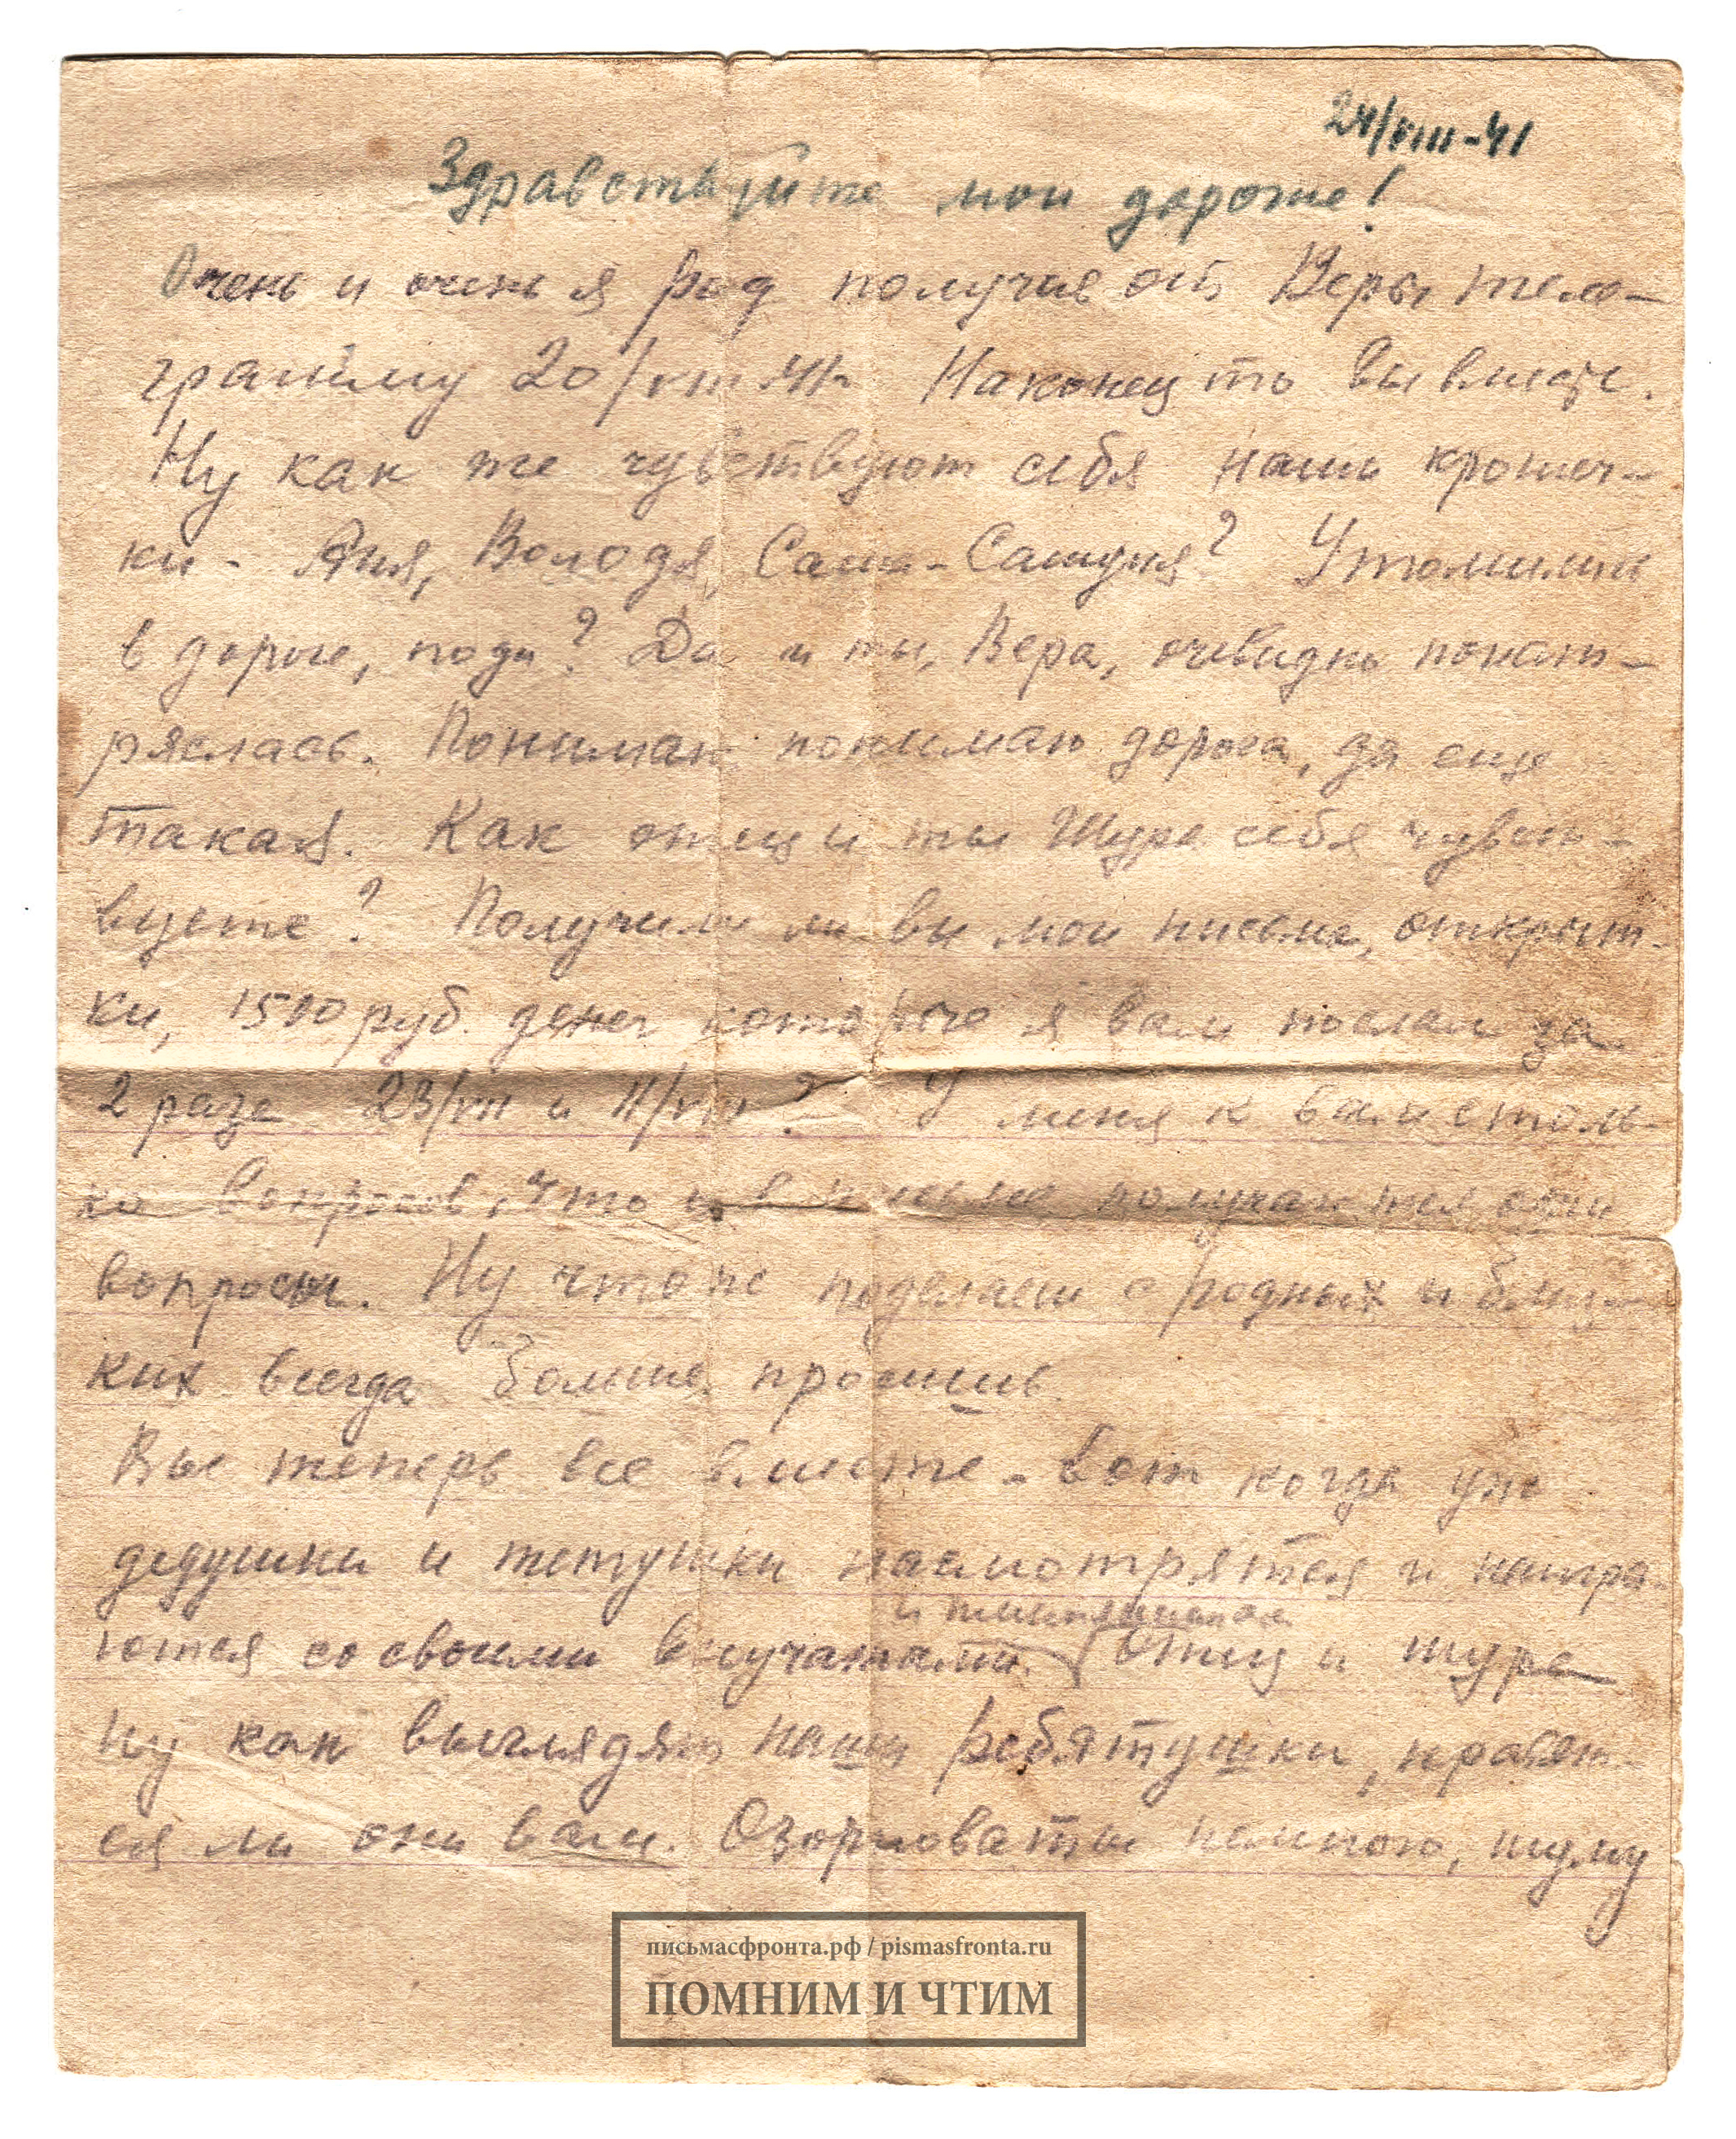 24/VIII-41
Здравствуйте мои дорогие!
Очень и очень я рад получив от Веры теле-
грамму 20/VIII 41г Наконец то вы вместе.
Ну как же чувствуют себя наши крошеч-
ки - Аня, Володя, Саша-Сашуня? Утомились
в дороге, поди? Да и ты, Вера, очевидно понат-
ряслась. Понимаю, понимаю дорога, да еще
такая. Как отец и ты Шура себя чувст-
вуете? Получили ли вы мои письма, открыт-
ки, 1500 руб. денег которые я вам послал за
2 раза 23/VII и 11/VIII? У меня к вам столь-
ко вопросов, что и в письме получаются одни
вопросы. Ну что же поделаешь с родных и близ-
ких всегда больше просишь.
Вы теперь все вместе - вот когда уж
дедушки и тетушки насмотрятся и наигра-
ются со своими внучатами. Отец и Шура
ну как выглядят наши ребятушки, нравят-
ся ли они вам. Озорноваты немного, шуму
письмасфронта.рф / pismasfronta.ru
ПОМНИМ И ЧТИМ